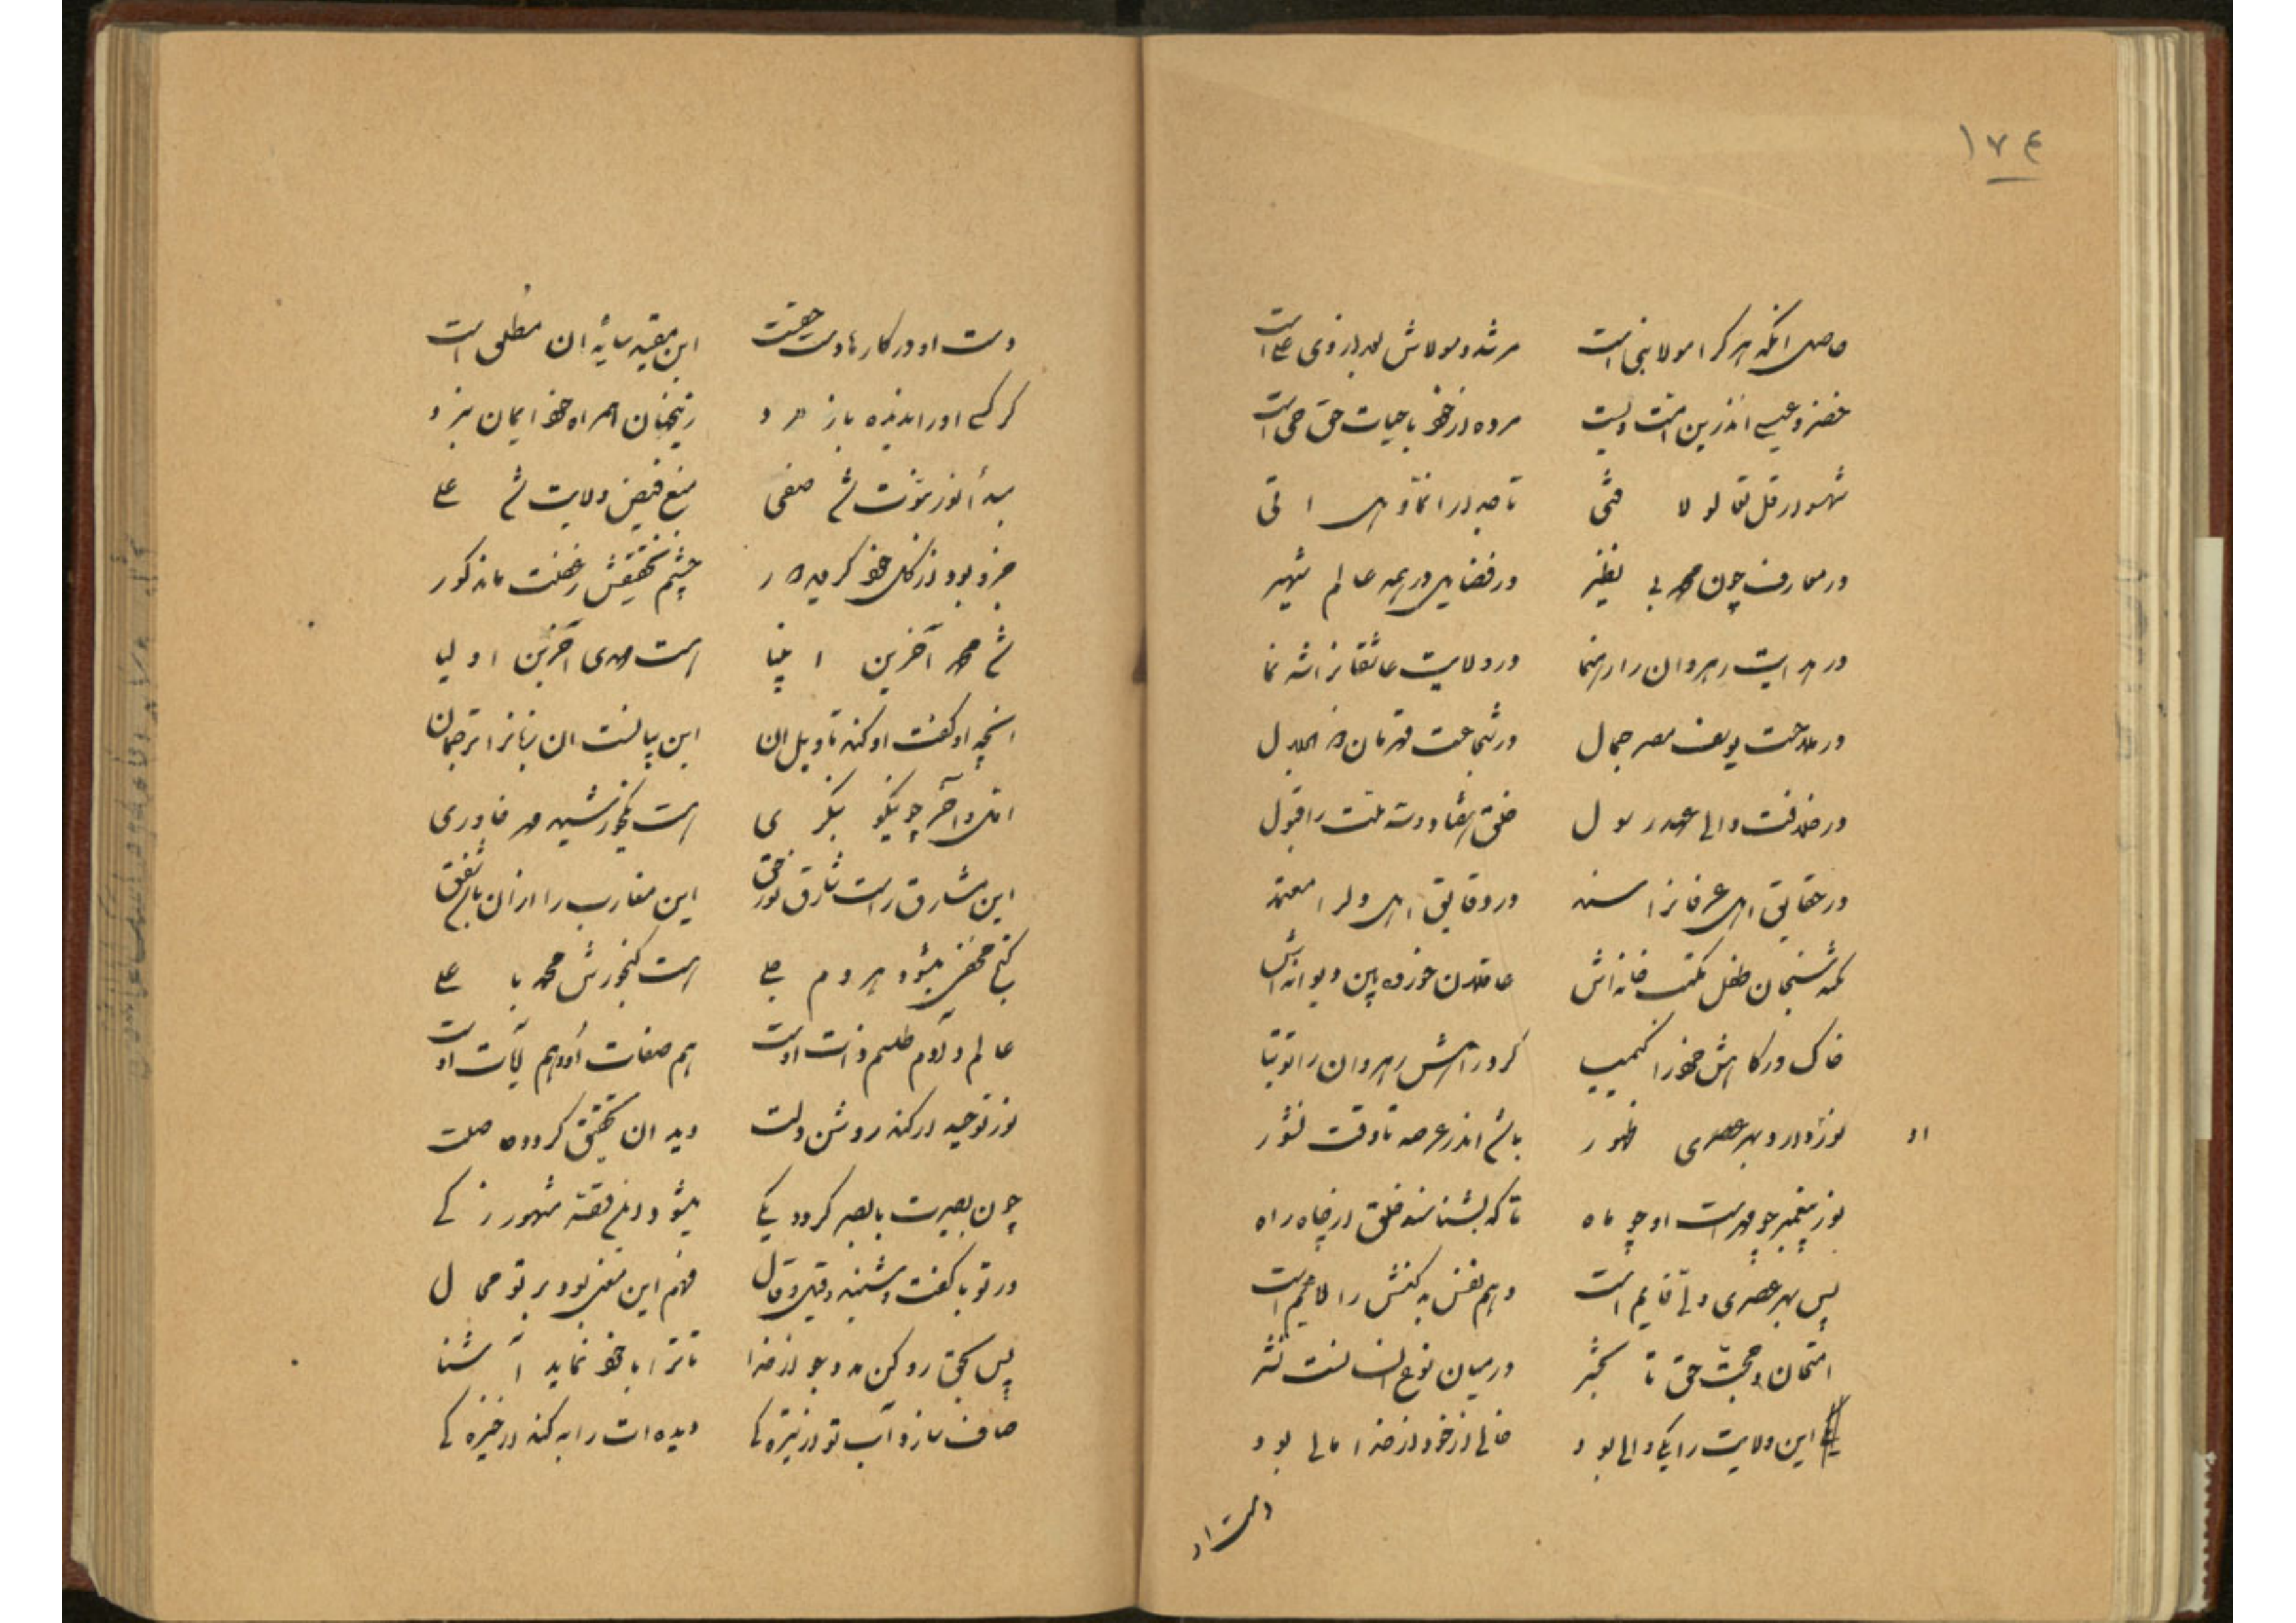 ١٧٤
حاصل انکه هر کرا مولا نبی است مرشد و مولاش بعد از وی علی است
خضر و عیسی اندرین امت ولیست مرده از خود با حیات حق حی است
در معارف چون محمد بی نظیر در فضایل در همه عالم شهیر
در هدایت رهروان را رهنما در ولایت عاشقانرا
در ملاحت یوسف مصر جمال در شجاعت قهرمان ذو الجلال
در خلافت والی عهد رسول خلق هفتاد و سه ملت را قبول
در حقایق اهل عرفانرا سند در دقایق اهل دلرا معتمد
نکته سنجان طفل مکتب خانه‌اش عاقلان خورده بین دیوانه‌اش
خاک درکاهش خضر را کیمیا کرد راهش رهروان را توتیا
او نور در هر عصری ظهور باشد اندر عرصه تا وقت نشور
نور پیغمبر چو مهرست او چو ماه تا که بشناسند خلق از چاه راه
پس بهر عصری ولی قایم است
امتحان و حجت حق تا بحشر در میان نوع انسانست نشر
این ولایت را یکی والی بود خالی از خود از خدا مالی بود
دست او
دست او در کارها دست حقست این مقید سایهٔ ان مطلق است
هر کسی او را همراه خود ایمان برد
مبدأ نور نبوت شد صفی منبع فیض ولایت شد علی
جزو بود از کل خود کردید دور چشم تحقیقش ز غفلت ماند کور
شد محمد آخرین انبیا هست مهدی آخرین اولیا
انچه او کفت او کند تاویل ان این بیانست ان زبانرا ترجمان
اول و آخر چو نیکو بنکری هست یکخورشید مهر خاوری
این مشارق راست شارق نور حق این مغارب را از ان باشد شفق
کنج مخفی میشود هر دم جلی هست کنجورش محمد با علی
عالم و آدم طلسم ذات اوست هم صفات او و هم آیات اوست
نور توحید ار کند روشن دلت دید ان تحقیق کردد حاصلت
چون بصیرت با بصر کردد یکی میشود دفع قصهٔ مشهور زکی
ور تو با کفت و شنید و قیل و قال فهم این معنی بود بر تو محال
پس بحق رو کن مدد جو از خدا تا ترا با خود نماید آشنا
صاف سازد آب تو از تیره‌کی دیده ات را به کند از خیره‌کی